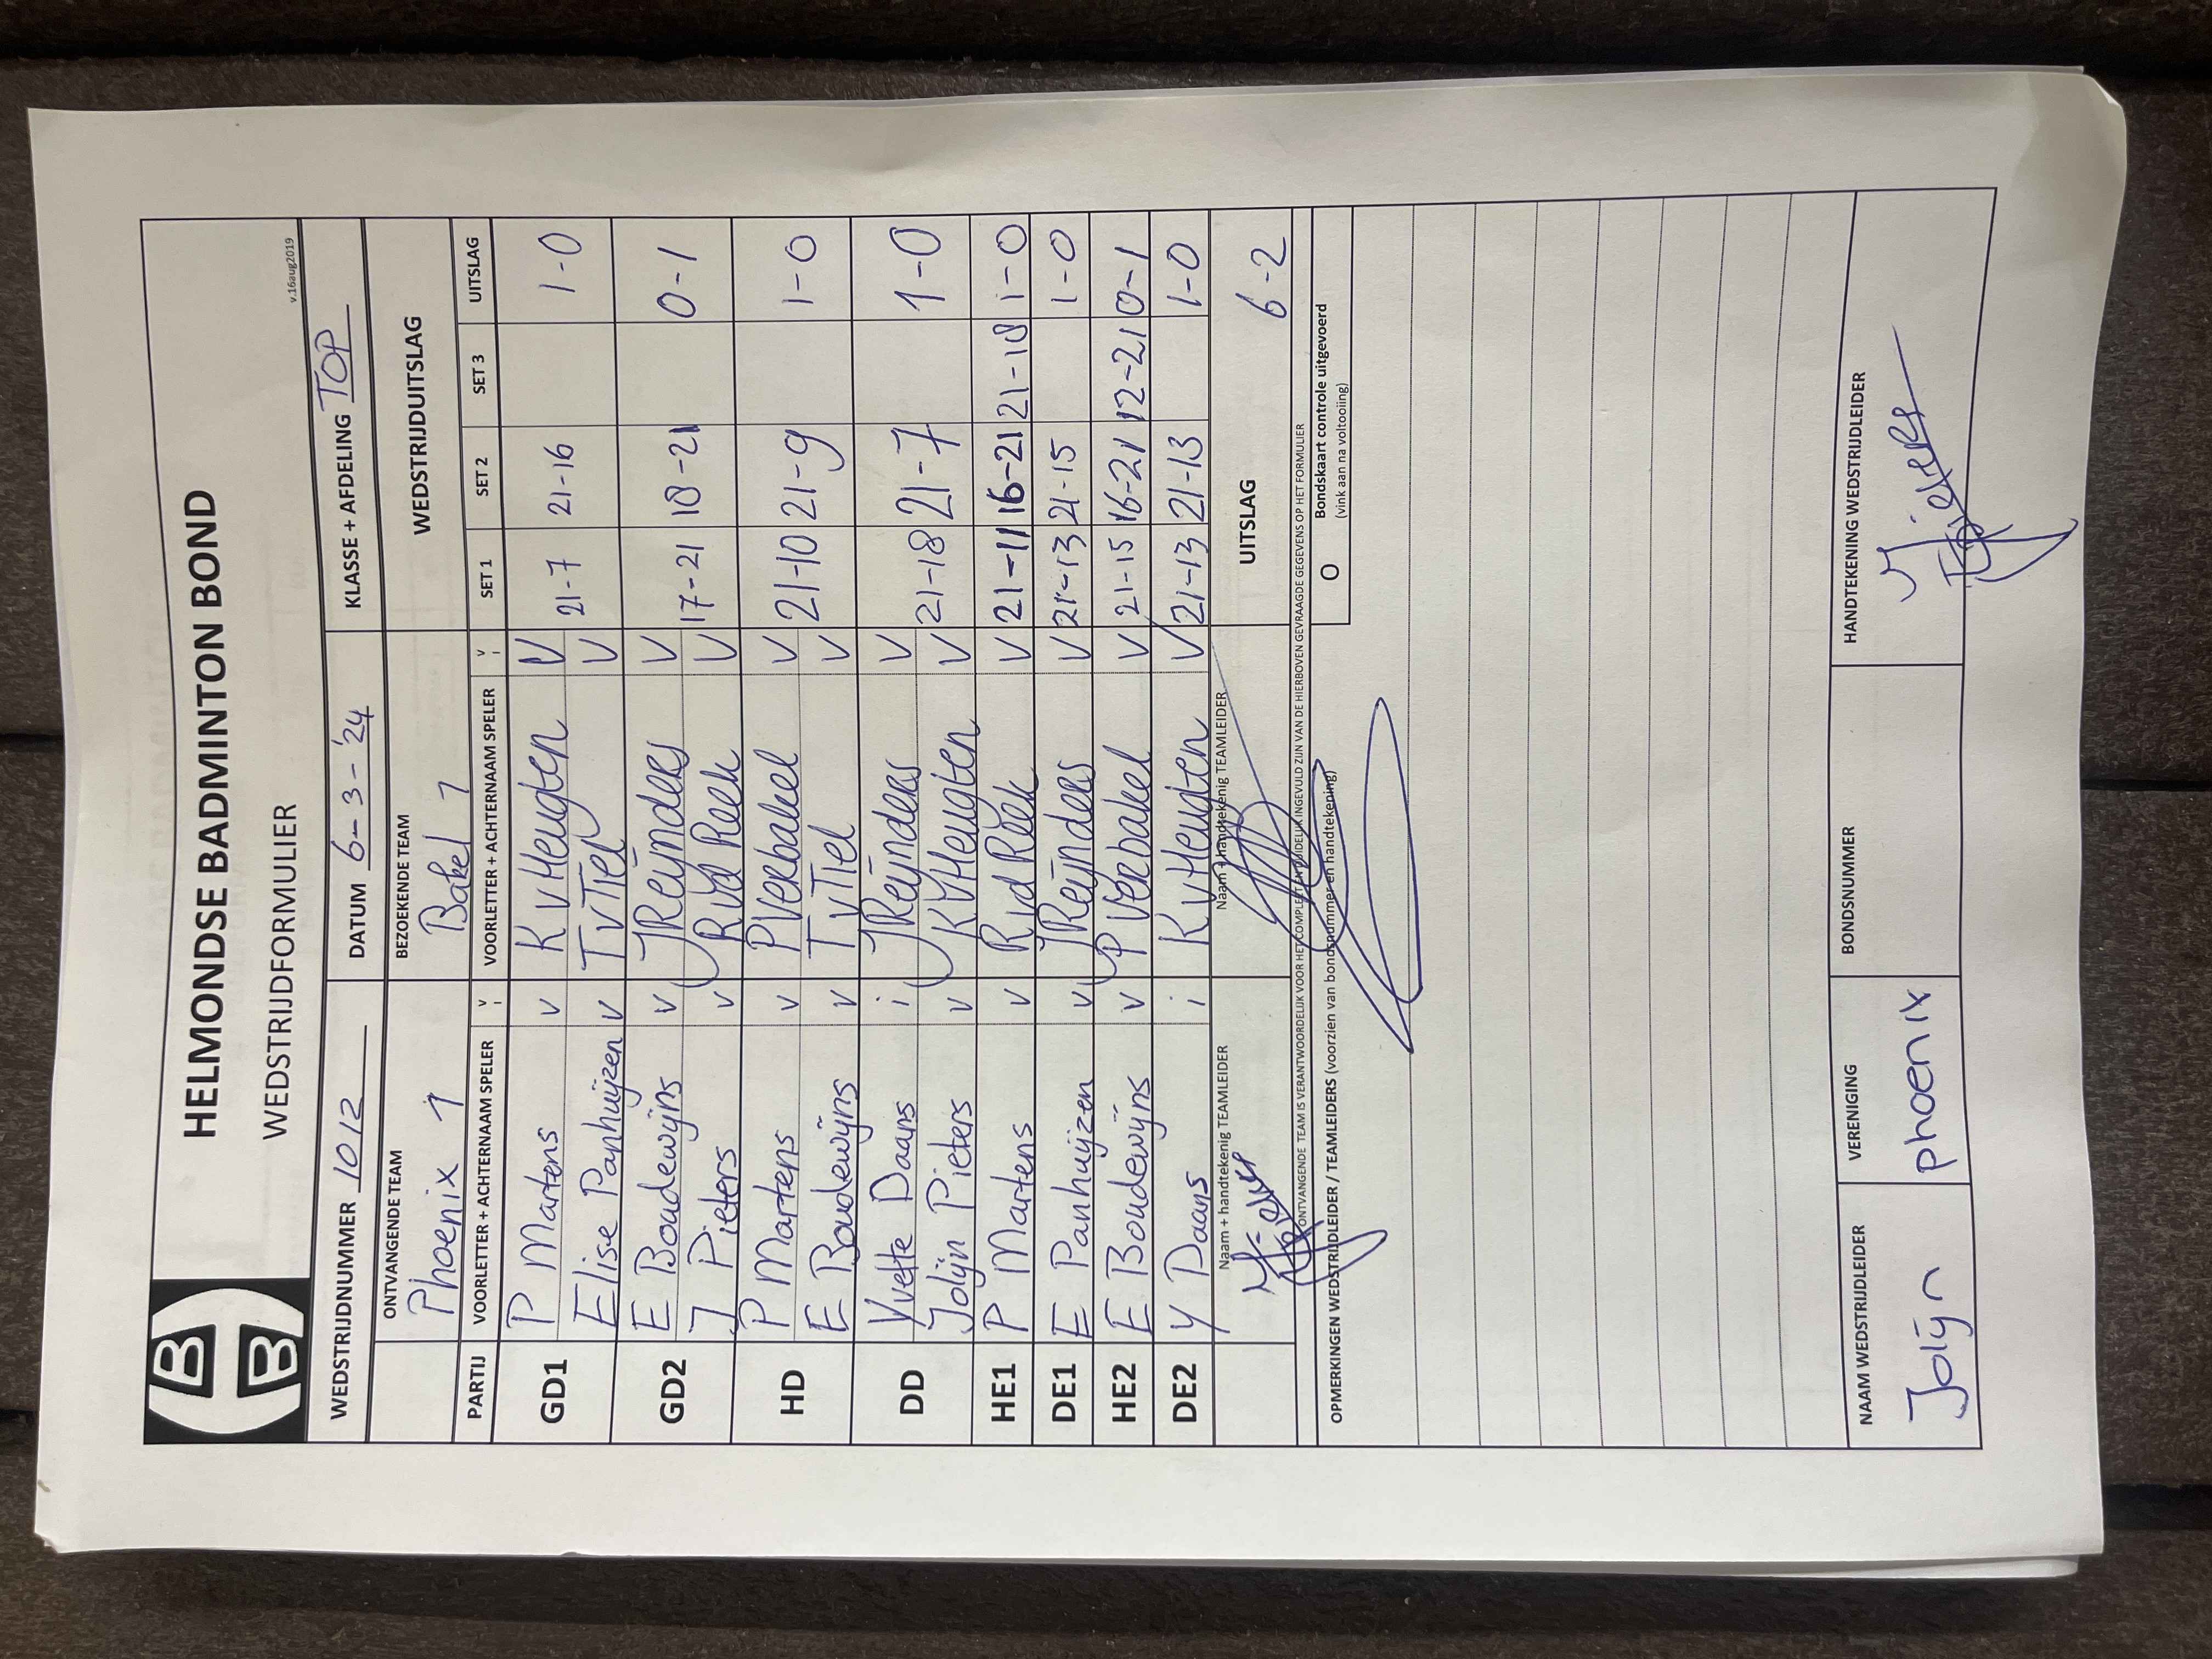 HELMONDSE BADMINTON BOND
WEDSTRIJDFORMULIER
v.16aug2019
WEDSTRIJDNUMMER 1012 DATUM 6-3-'24 KLASSE + AFDELING TOP
ONTVANGENDE TEAM BEZOEKENDE TEAM WEDSTRIJDUITSLAG
Phoenix 1 Bakel 1
PARTIJ VOORLETTER + ACHTERNAAM SPELER V i VOORLETTER + ACHTERNAAM SPELER V i SET 1 SET 2 SET 3 UITSLAG
GD1 P Martens V K v Heugten V 21-7 21-16 1-0
Elise Panhuijzen V T v Tiel V
GD2 E Boudewijns V J Reijnders V 17-21 18-21 0-1
J Pieters V R vd Reek V
HD P Martens V P Verbakel V 21-10 21-9 1-0
E Boudewijns V T v Tiel V
DD Yvette Daans i J Reijnders V 21-18 21-7 1-0
Jolijn Pieters V K v Heugten V
HE1 P Martens V R vd Reek V 21-11 16-21 21-18 1-0
DE1 E Panhuijzen V J Reijnders V 21-13 21-15 1-0
HE2 E Boudewijns V P Verbakel V 21-15 16-21 12-21 0-1
DE2 Y Daans i K v Heugten V 21-13 21-13 1-0
Naam + handtekenig TEAMLEIDER Naam + handtekenig TEAMLEIDER UITSLAG 6-2
ONTVANGENDE TEAM IS VERANTWOORDELIJK VOOR HET COMPLEET EN DUIDELIJK INGEVULD ZIJN VAN DE HIERBOVEN GEVRAAGDE GEGEVENS OP HET FORMULIER
OPMERKINGEN WEDSTRIJDLEIDER / TEAMLEIDERS (voorzien van bondsnummer en handtekening) O Bondskaart controle uitgevoerd
(vink aan na voltooiing)
NAAM WEDSTRIJDLEIDER VERENIGING BONDSNUMMER HANDTEKENING WEDSTRIJDLEIDER
Jolijn phoenix